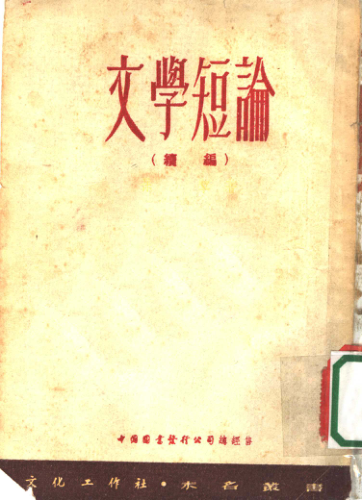 文學短論
(續編)
中國圖書發行公司總經售
文化工作社·未名叢書